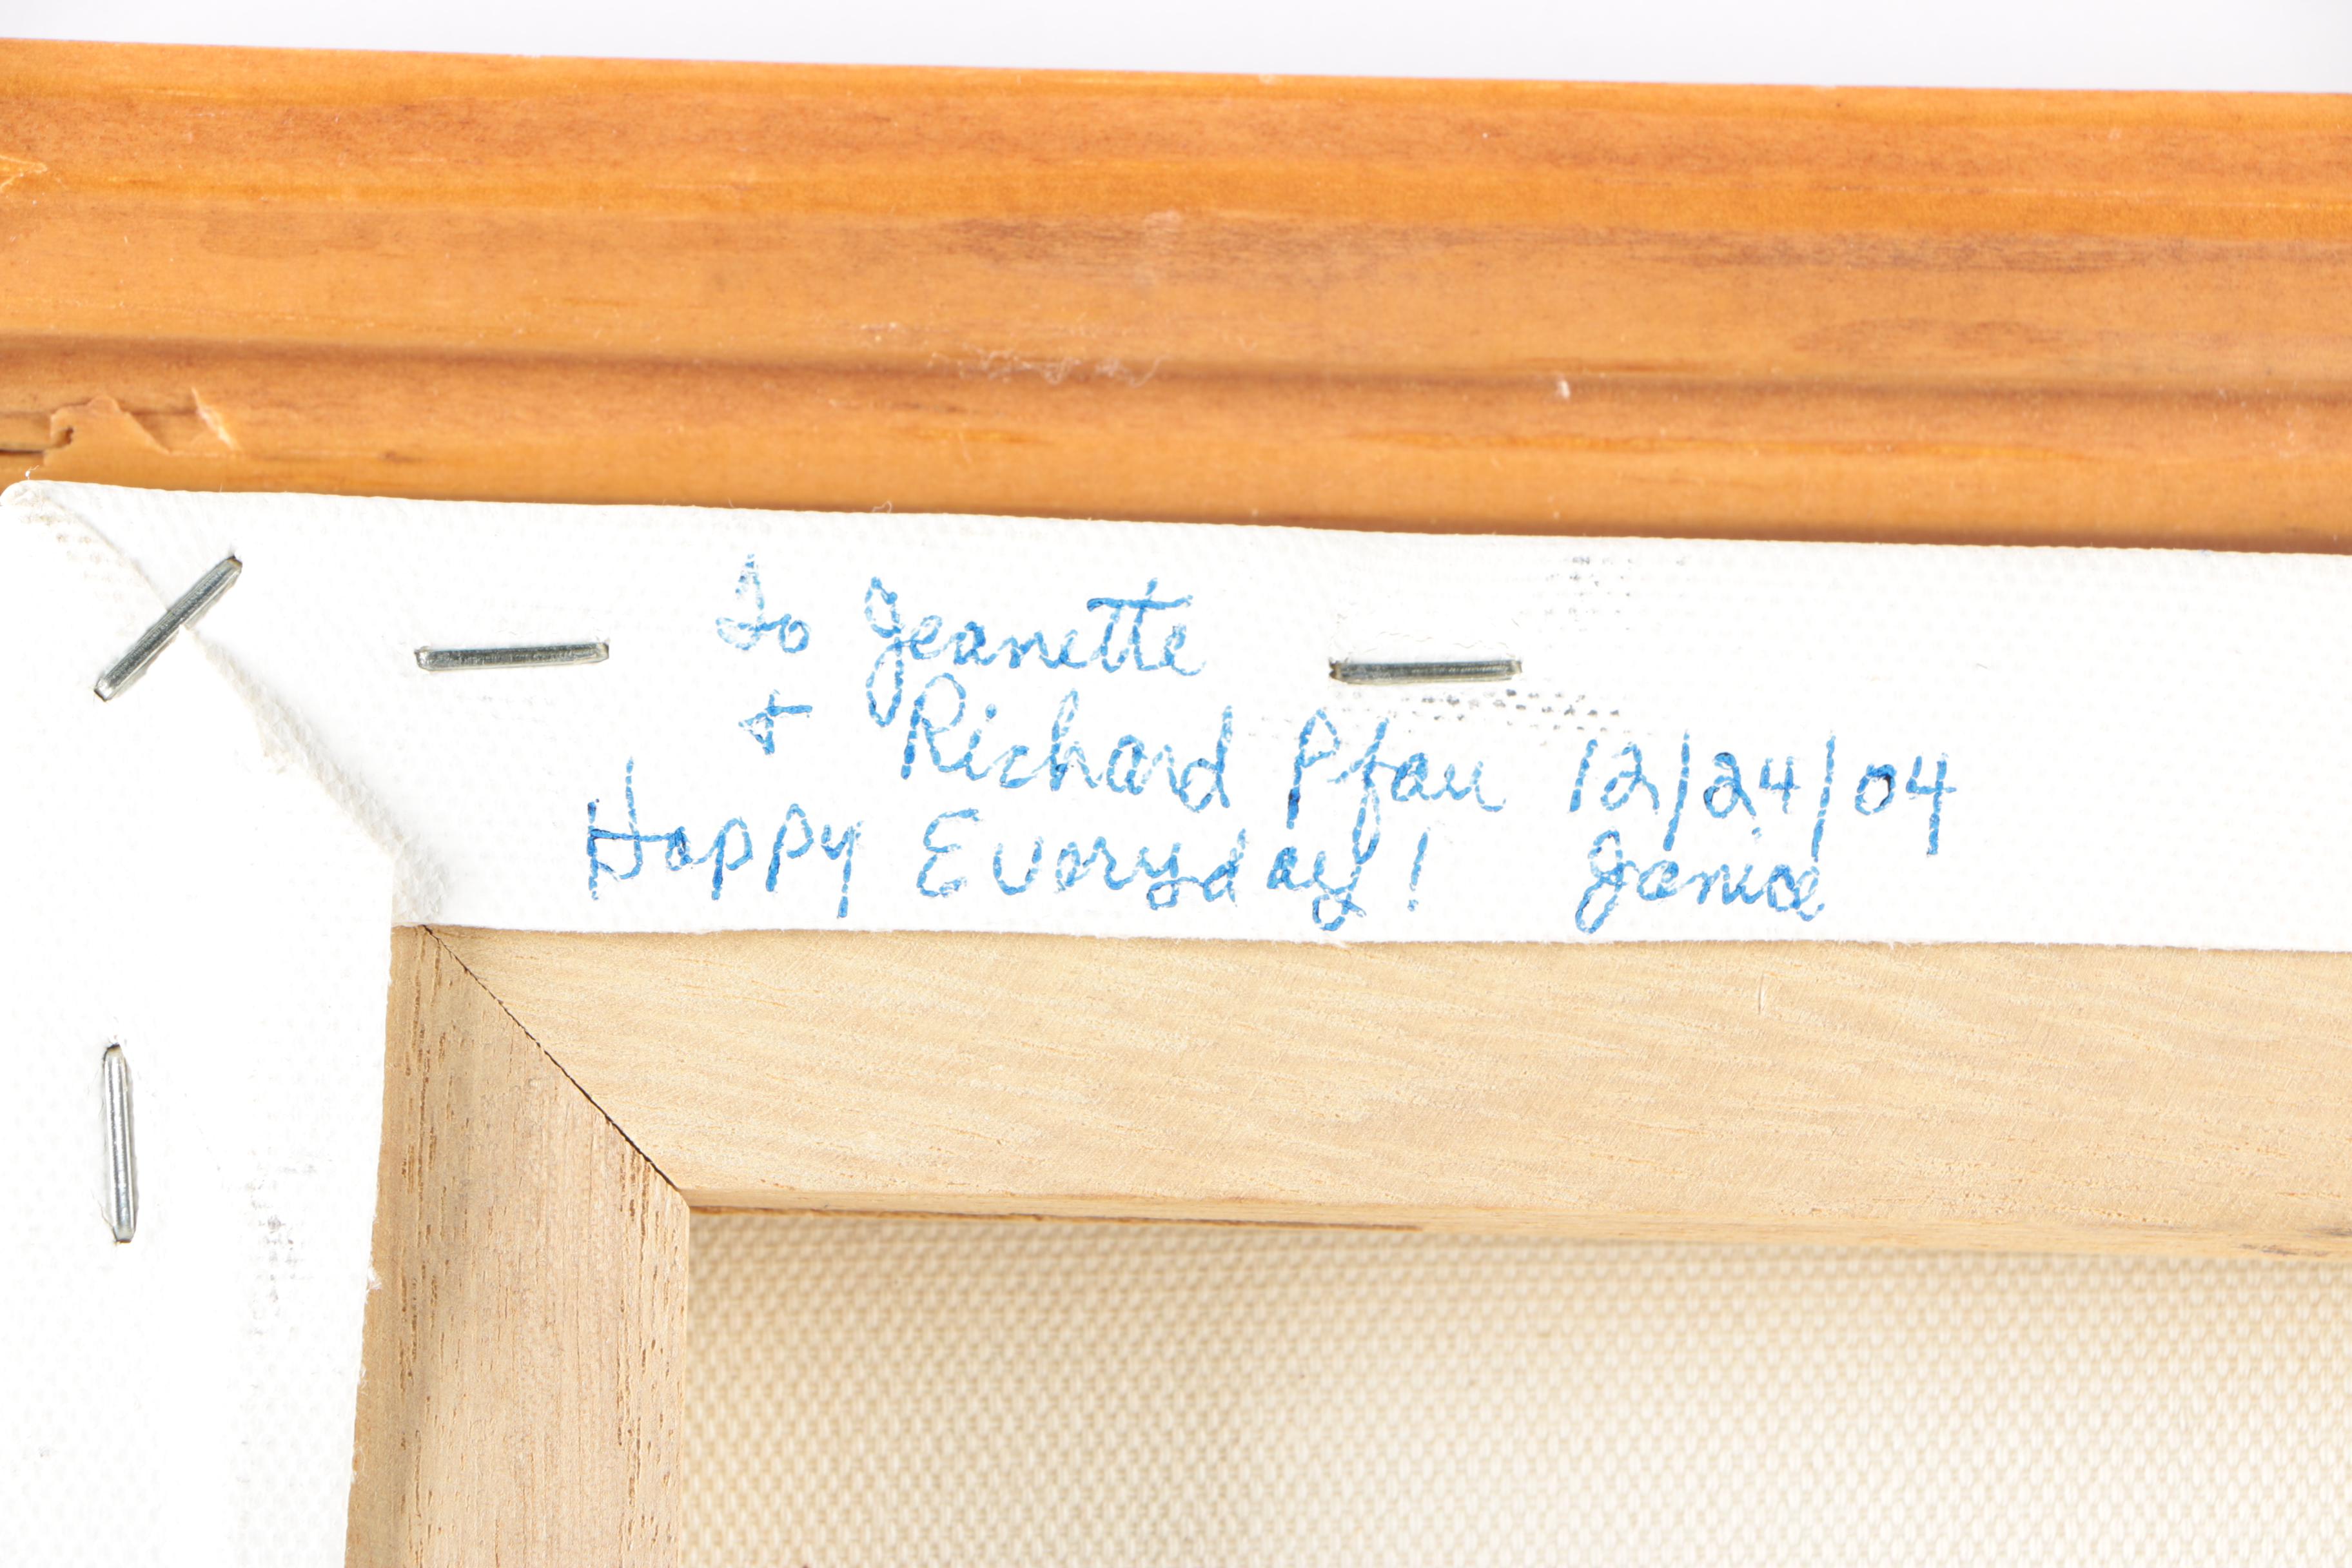 To Jeanette
+ Richard Pfau 12/24/04
Happy Everyday! Janice